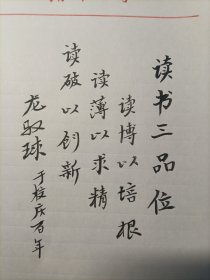 读书三品位
读博以培根
读薄以求精
读破以创新
龙驭球
于校庆百年